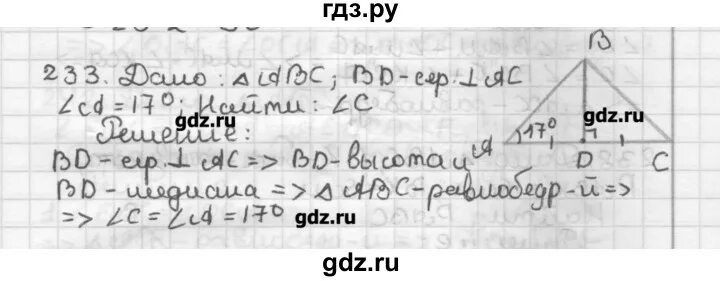 гдз.ру
233. Дано: △ABC; BD-сер.⊥AC
∠A=17°; Найти: ∠C
gdz.ru
Решение:
BD-сер.⊥AC=> BD-высота и
BD-медиана => △ABC-равнобедр-й=>
=> ∠C=∠A=17°
gdz.ru
B
gdz.ru
17°
A
D
C
gdz.ru